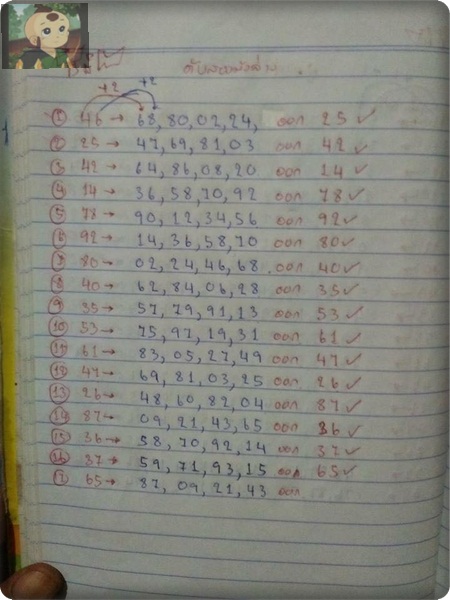 +2 +2
① 46 → 68, 80, 02, 24, ออก 25 ✓
② 25 → 47, 69, 81, 03 ออก 42 ✓
③ 42 → 64, 86, 08, 20 ออก 14 ✓
④ 14 → 36, 58, 70, 92 ออก 78 ✓
⑤ 78 → 90, 12, 34, 56 ออก 92 ✓
⑥ 92 → 14, 36, 58, 70 ออก 80 ✓
⑦ 80 → 02, 24, 46, 68 ออก 40 ✓
⑧ 40 → 62, 84, 06, 28 ออก 35 ✓
⑨ 35 → 57, 79, 91, 13 ออก 53 ✓
⑩ 53 → 75, 97, 19, 31 ออก 61 ✓
⑪ 61 → 83, 05, 27, 49 ออก 47 ✓
⑫ 47 → 69, 81, 03, 25 ออก 26 ✓
⑬ 26 → 48, 60, 82, 04 ออก 87 ✓
⑭ 87 → 09, 21, 43, 65 ออก 36 ✓
⑮ 36 → 58, 70, 92, 14 ออก 37 ✓
⑯ 37 → 59, 71, 93, 15 ออก 65 ✓
65 → 87, 09, 21, 43 ออก